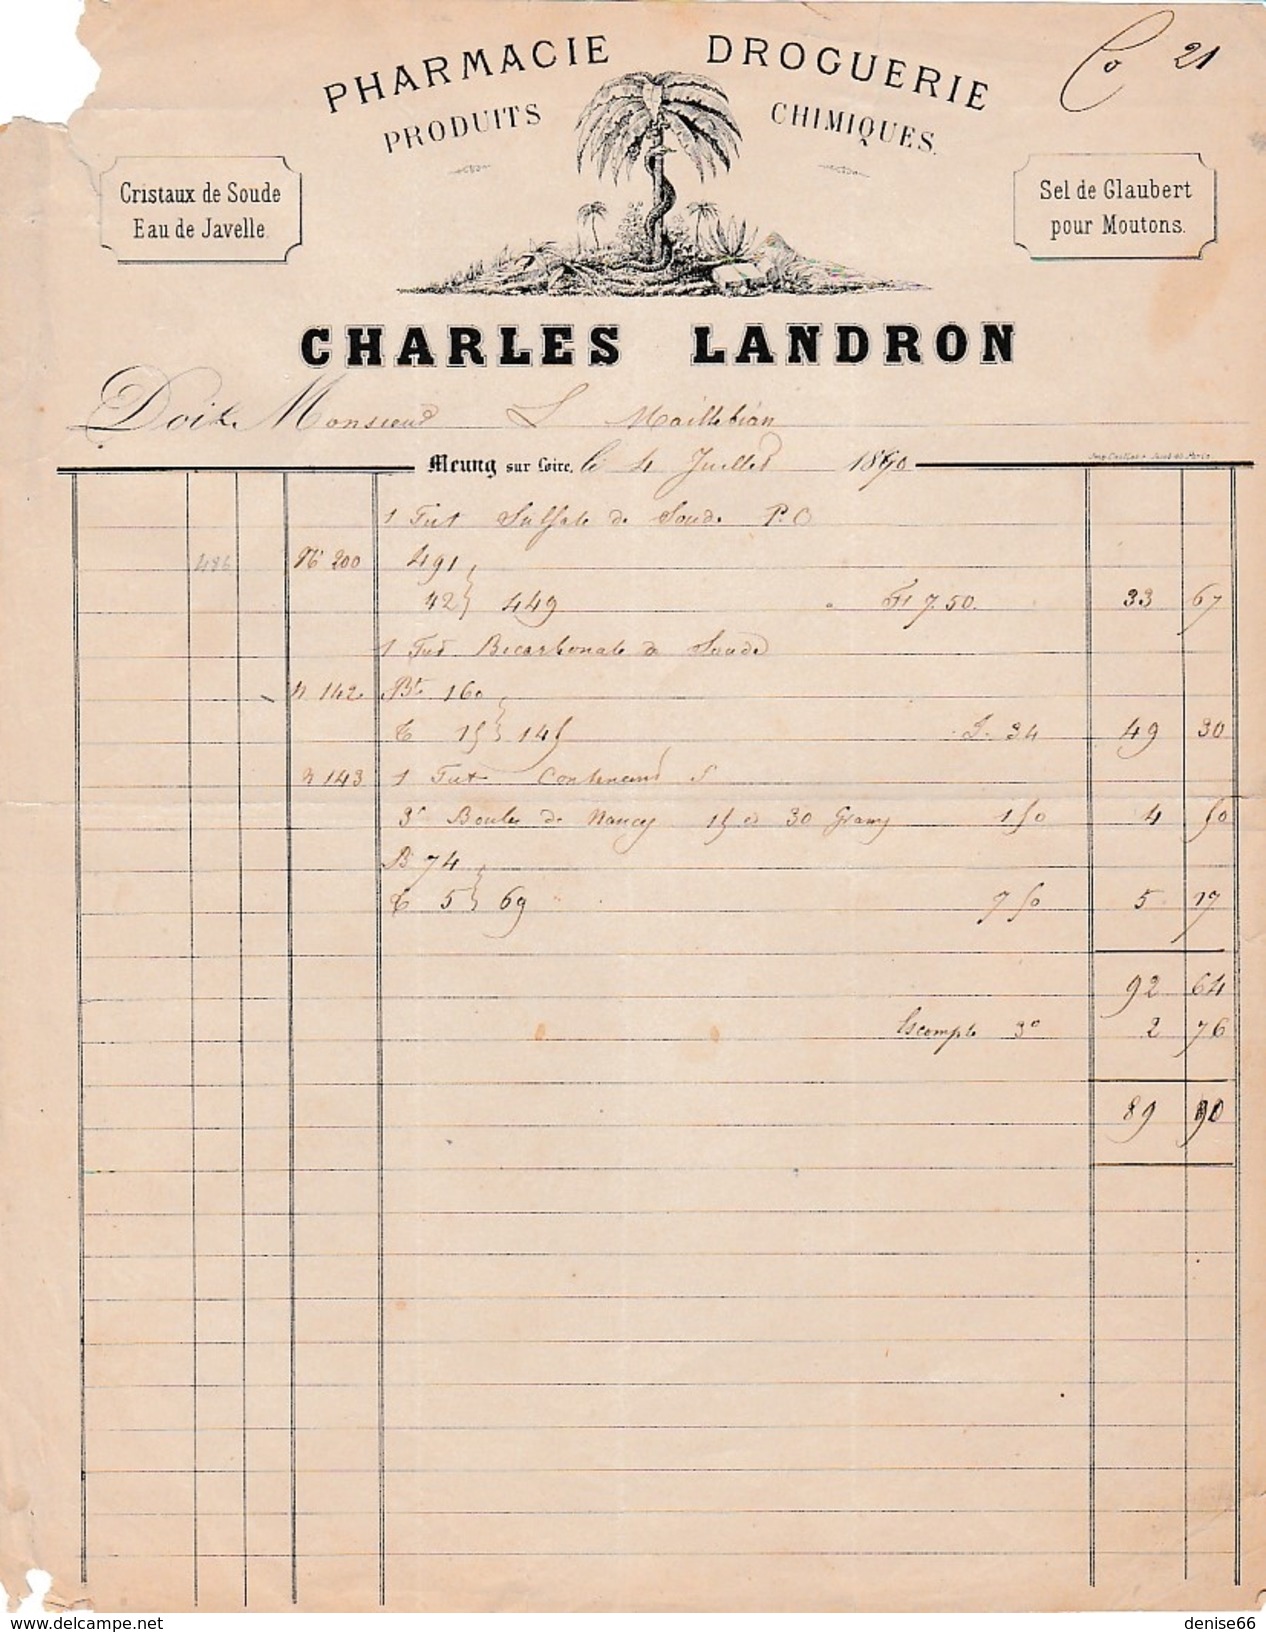 Co 21
PHARMACIE DROGUERIE
PRODUITS CHIMIQUES.
Cristaux de Soude
Eau de Javelle.
Sel de Glaubert
pour Moutons.
CHARLES LANDRON
Doit Monsieur
Meung sur Loire, le 4 Juillet 1890
1 Fut Sulfate de Soude P.O
486 No 200 491
42 449 F 7.50. 33 67
1 Fut Bicarbonate de Soude
n 142 Bt 160
T 15 145 F. 34 49 30
n 143 1 Fut Contenant
3 Boules de Nancy 15 et 30 Grams 150 4 50
B 74
T 5 69 7 50 5 17
92 64
Escompte 3º 2 76
89 90
www.delcampe.net
denise66